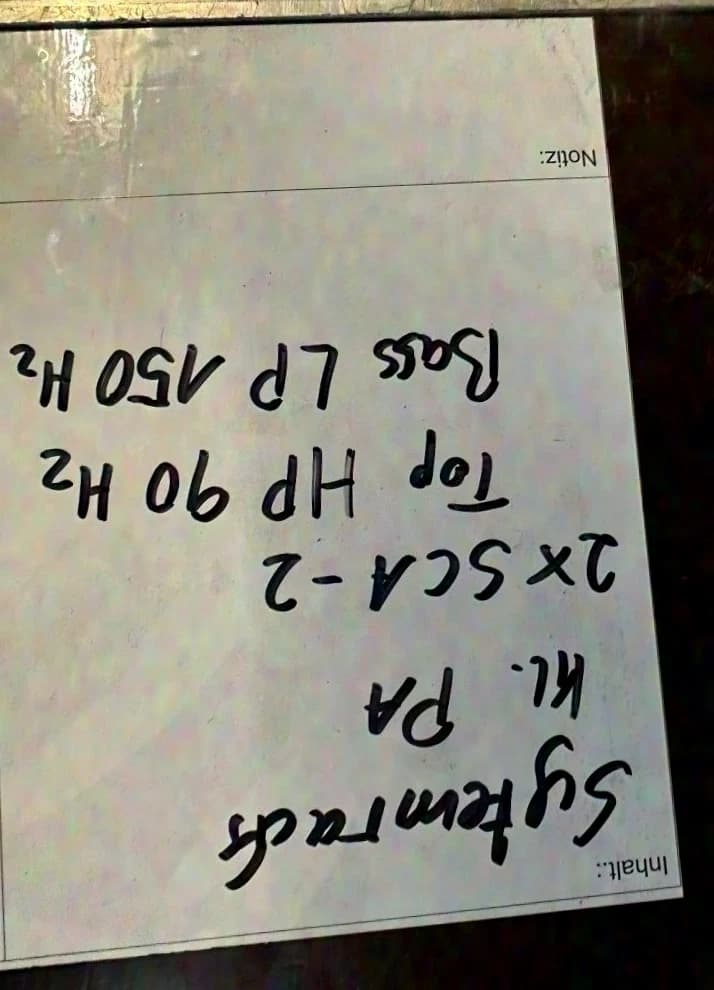 Inhalt.:
Sytemracks
kl. PA
2x SCA-2
Top HP 90 Hz
Bass LP 150 Hz
Notiz: